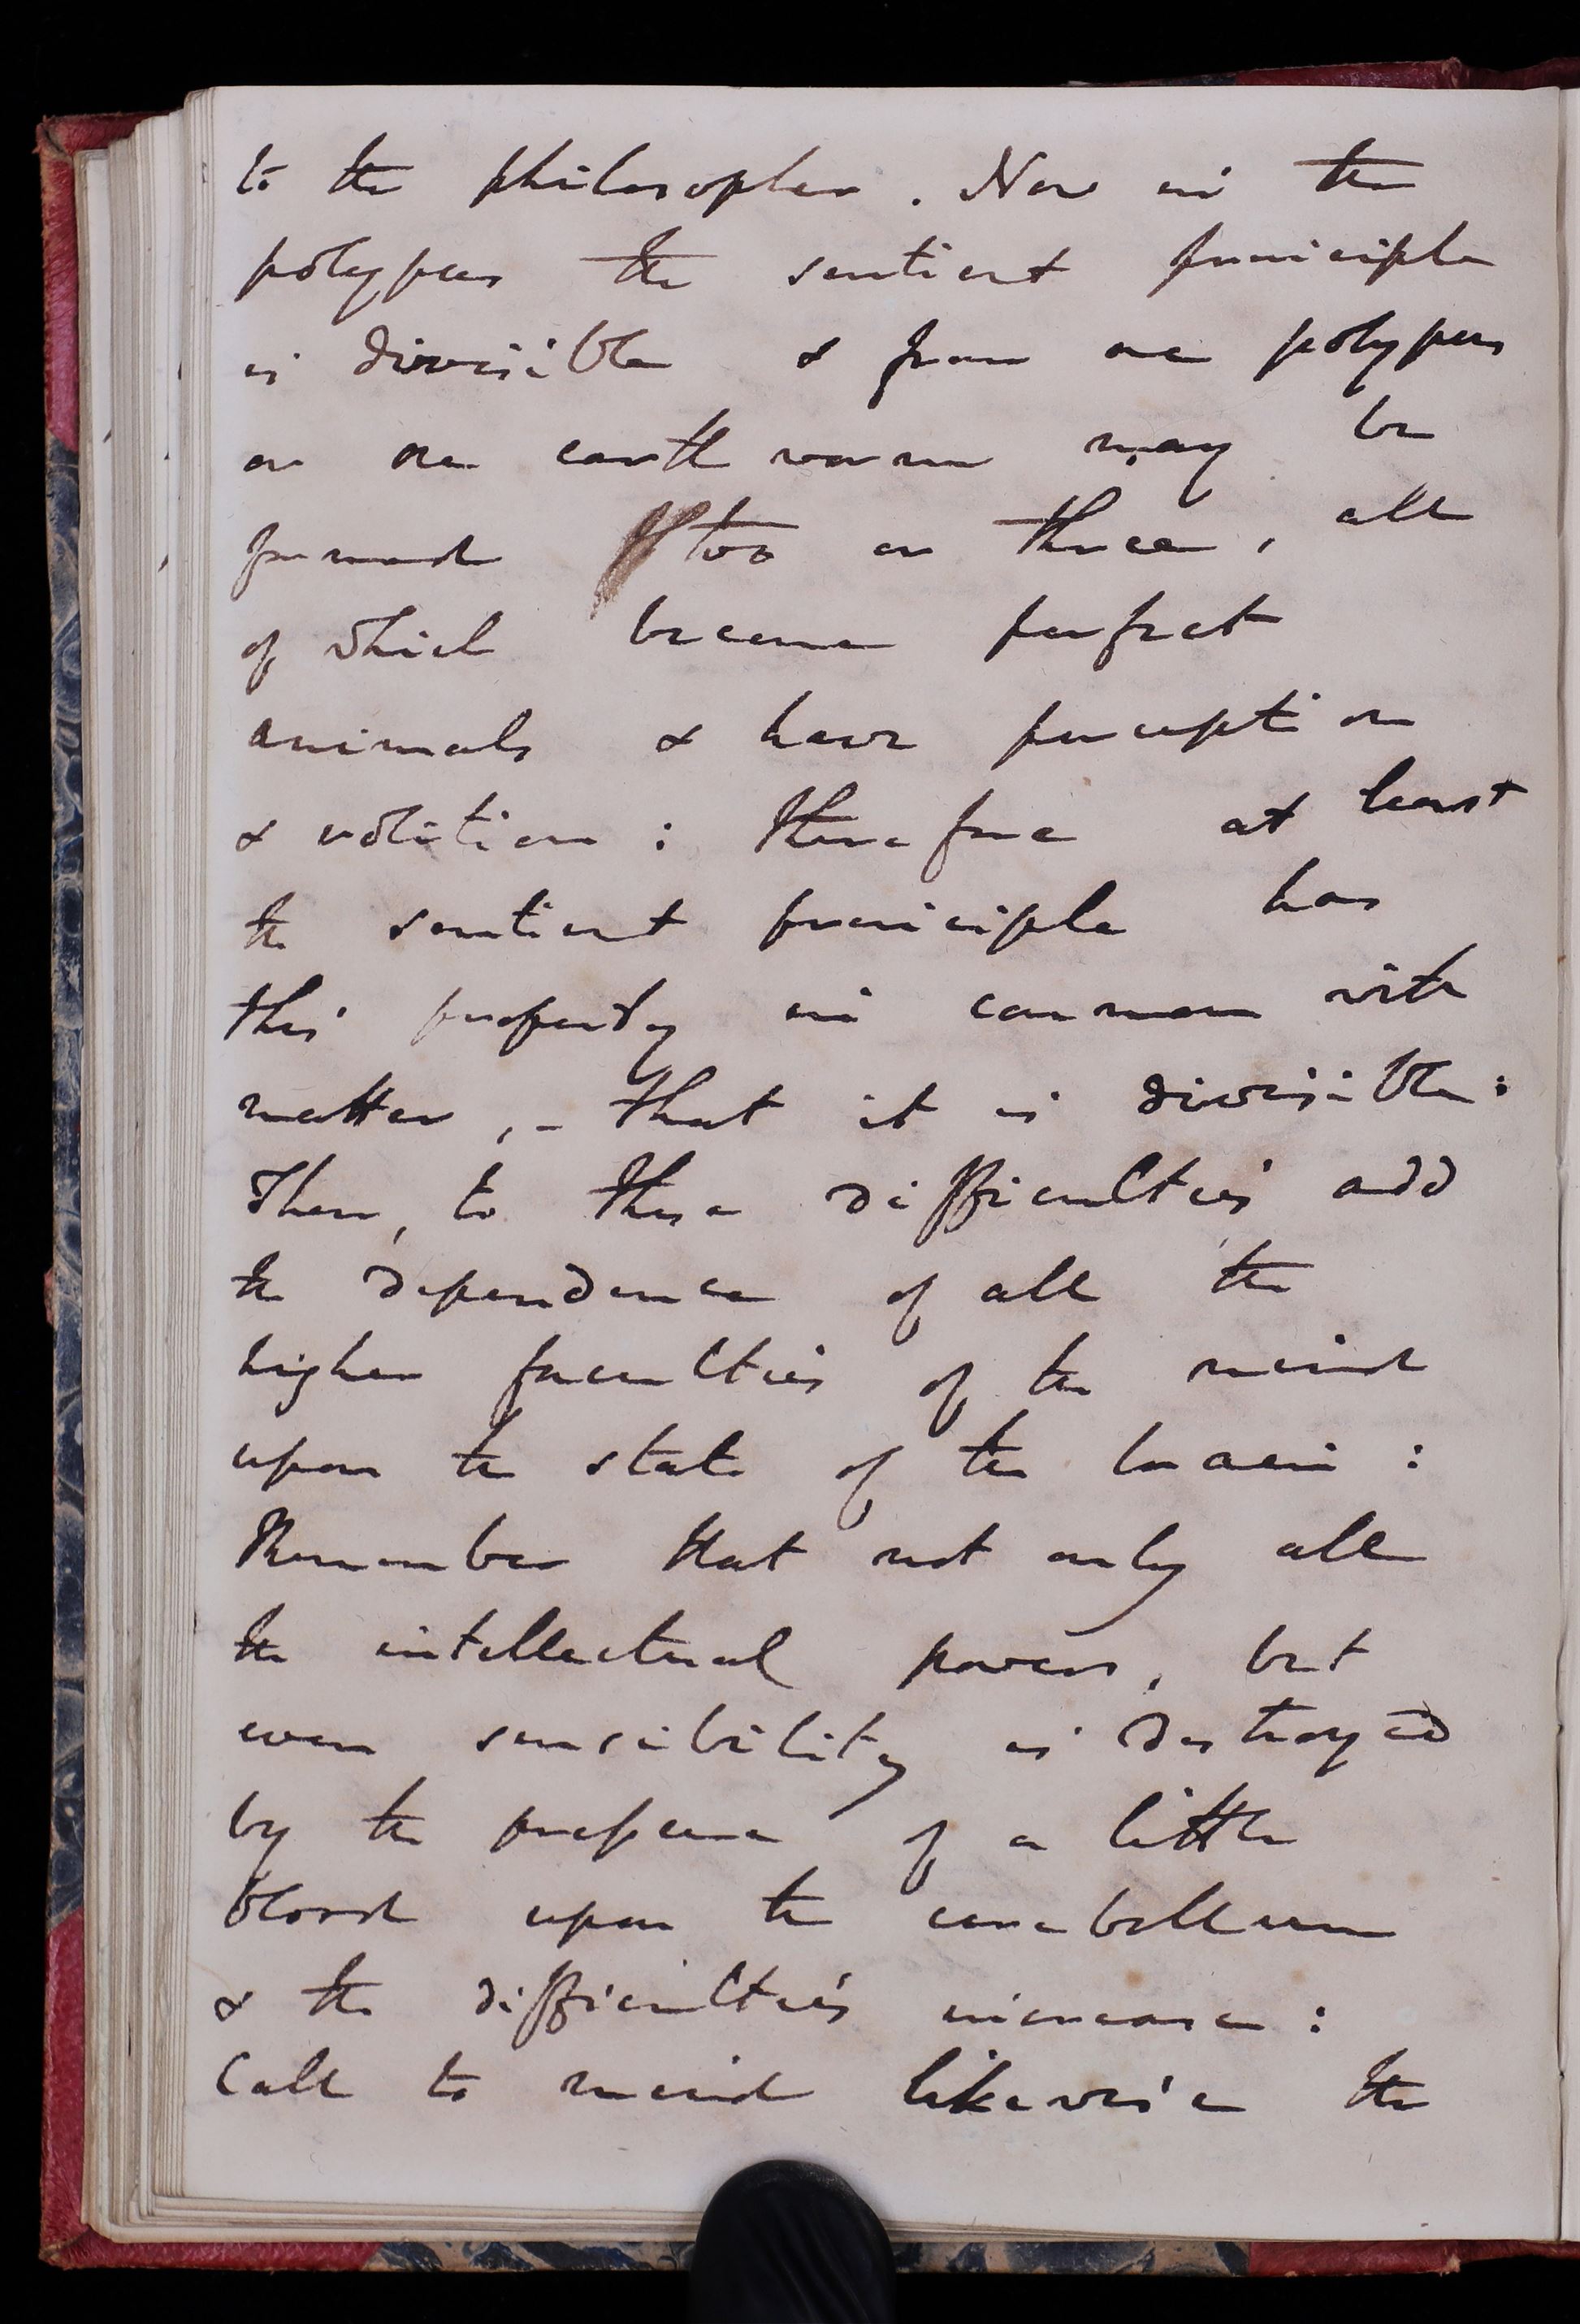 to the philosopher. Now in the
polypus the sentient principle
is divisible & from one polypus
or one earth worm may be
formed two or three, all
of which become perfect
animals & have perception
& volition: therefore at least
the sentient principle has
this property in common with
matter, - that it is divisible:
Then, to these difficulties add
the dependence of all the
higher faculties of the mind
upon the state of the brain:
Remember that not only all
the intellectual powers, but
even sensibility is destroyed
by the pressure of a little
blood upon the cerebellum
& the difficulties increase:
Call to mind likewise the